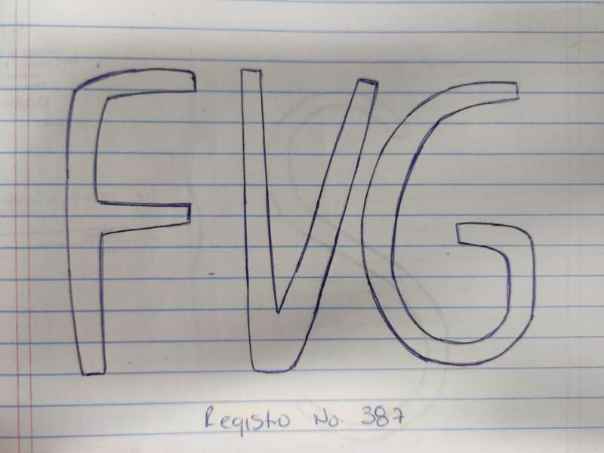 FVG
Registo No. 387